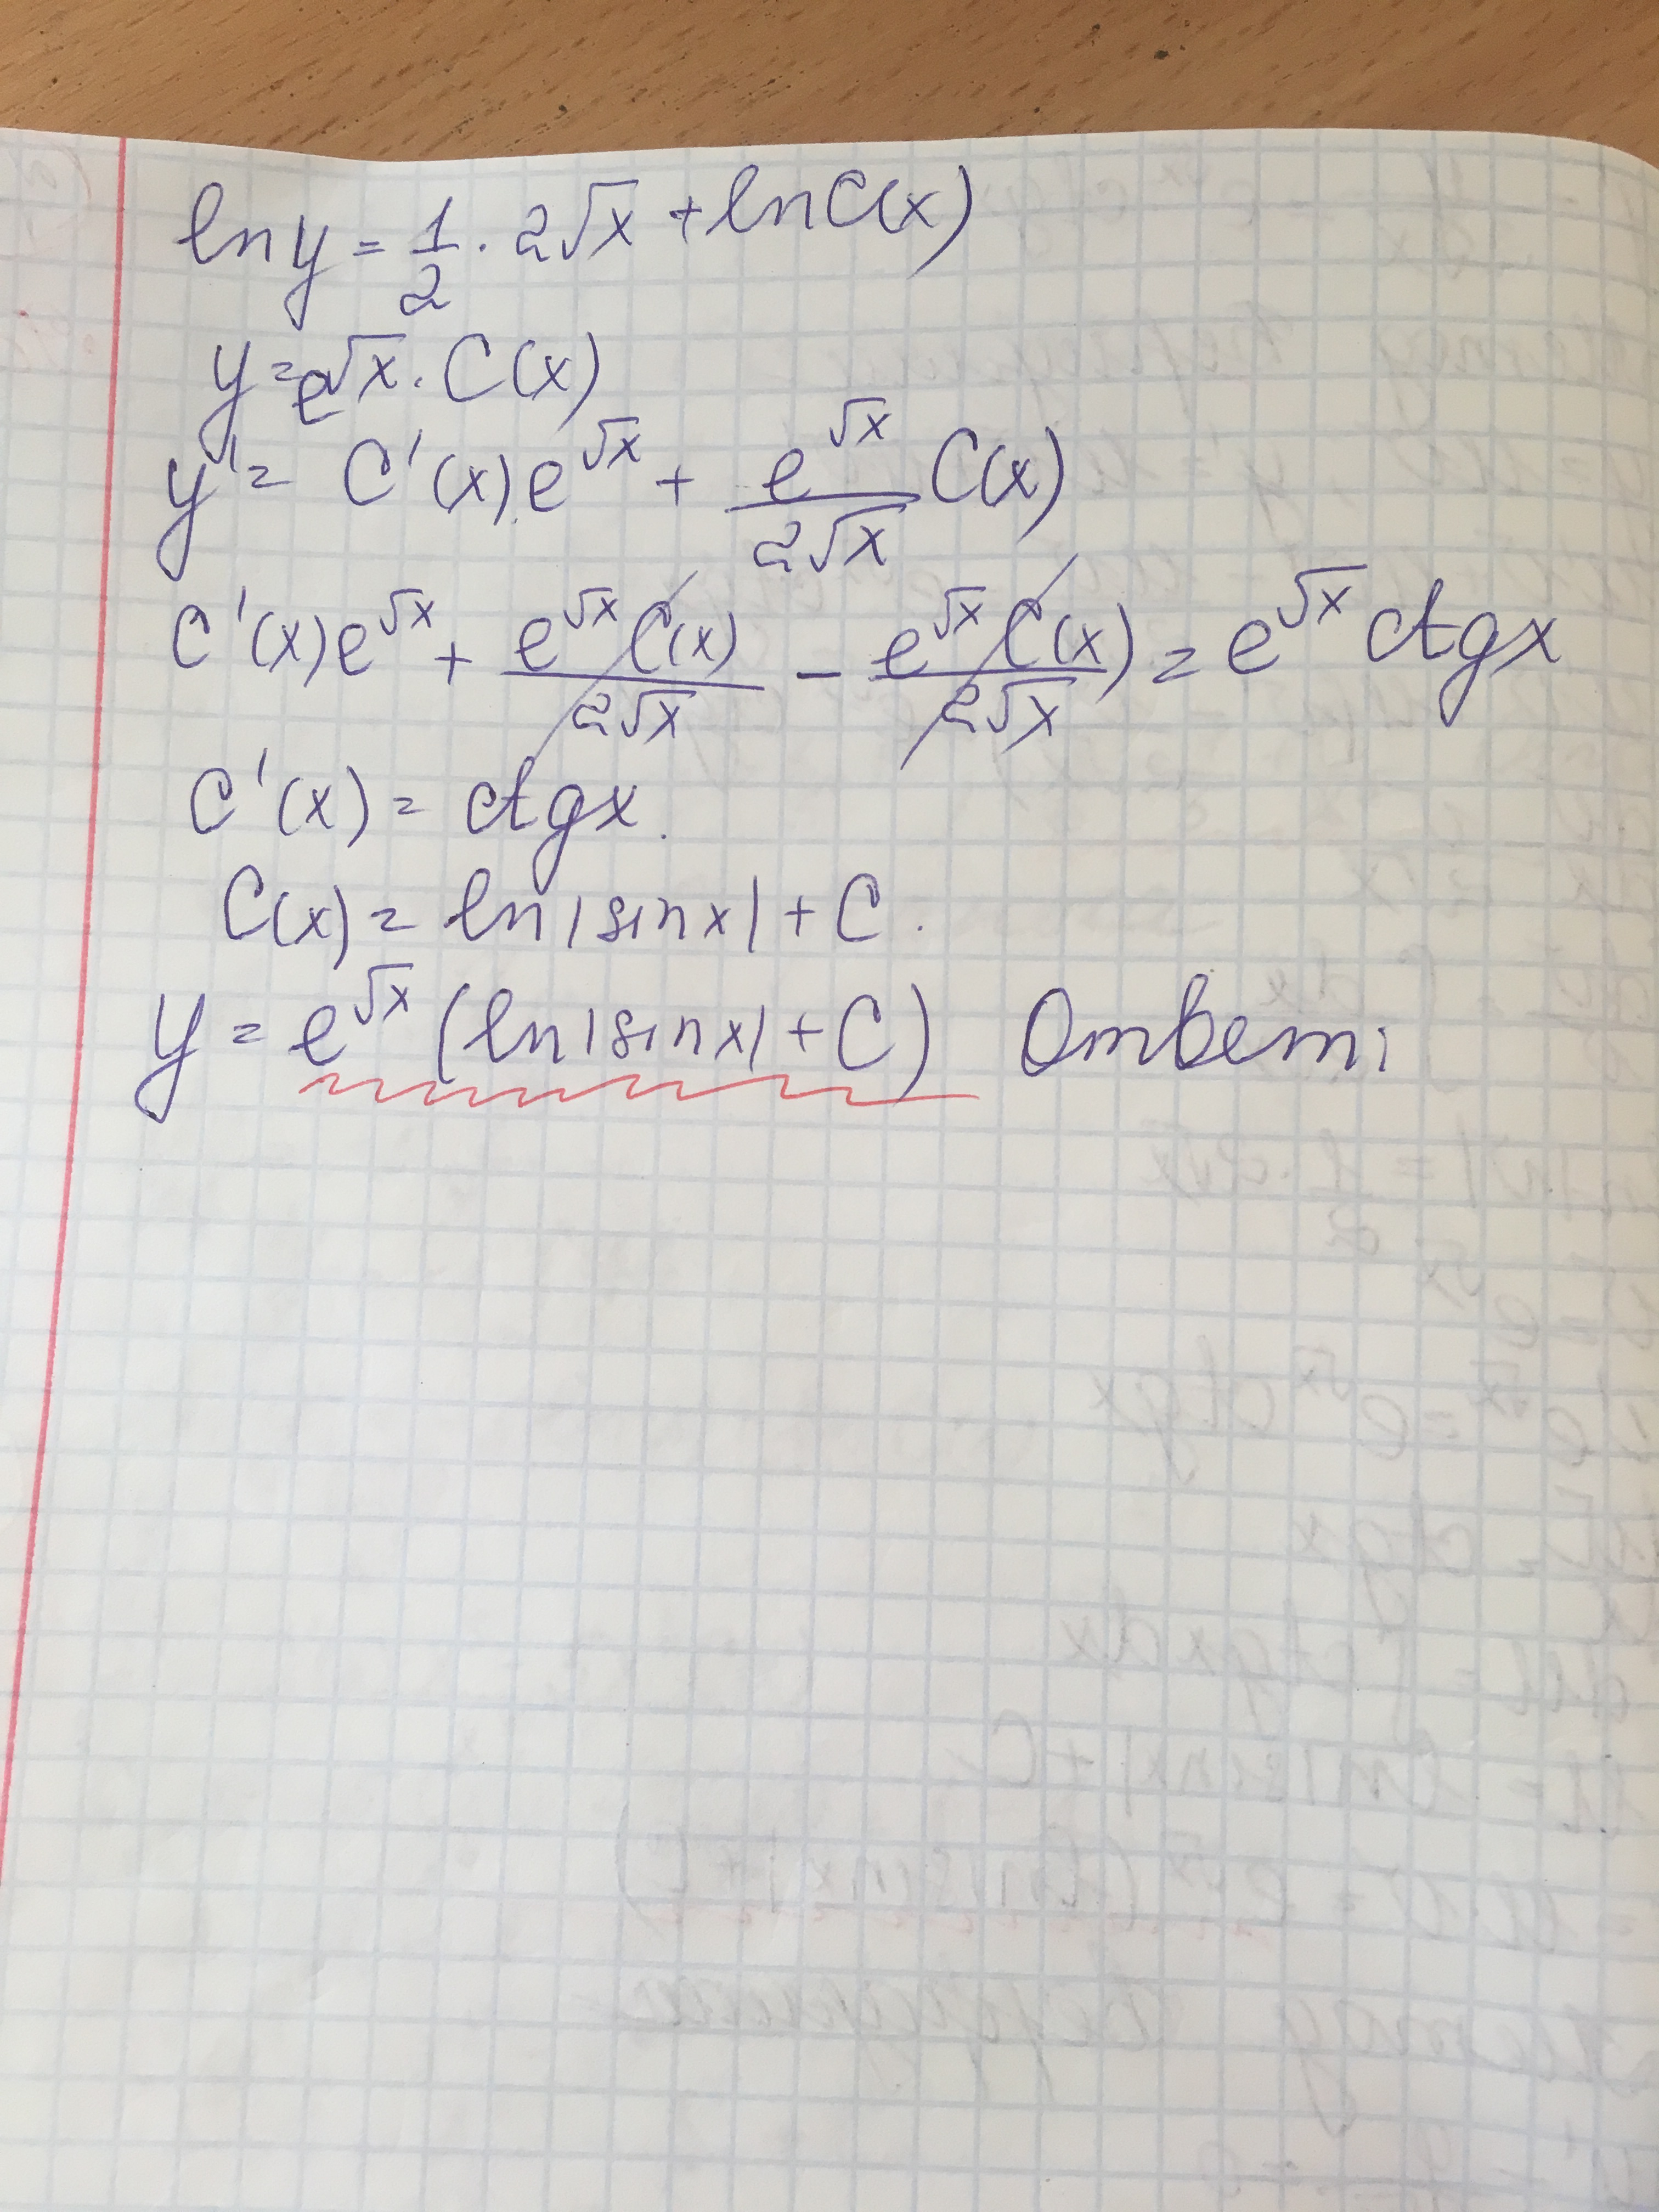 ln y = 1/2 · 2√x + ln C(x)
y = e^√x · C(x)
y' = C'(x) e^√x + e^√x/2√x C(x)
C'(x) e^√x + e^√x C(x)/2√x - e^√x C(x)/2√x = e^√x ctg x
C'(x) = ctg x.
C(x) = ln |sin x| + C.
y = e^√x (ln |sin x| + C) Ответ: